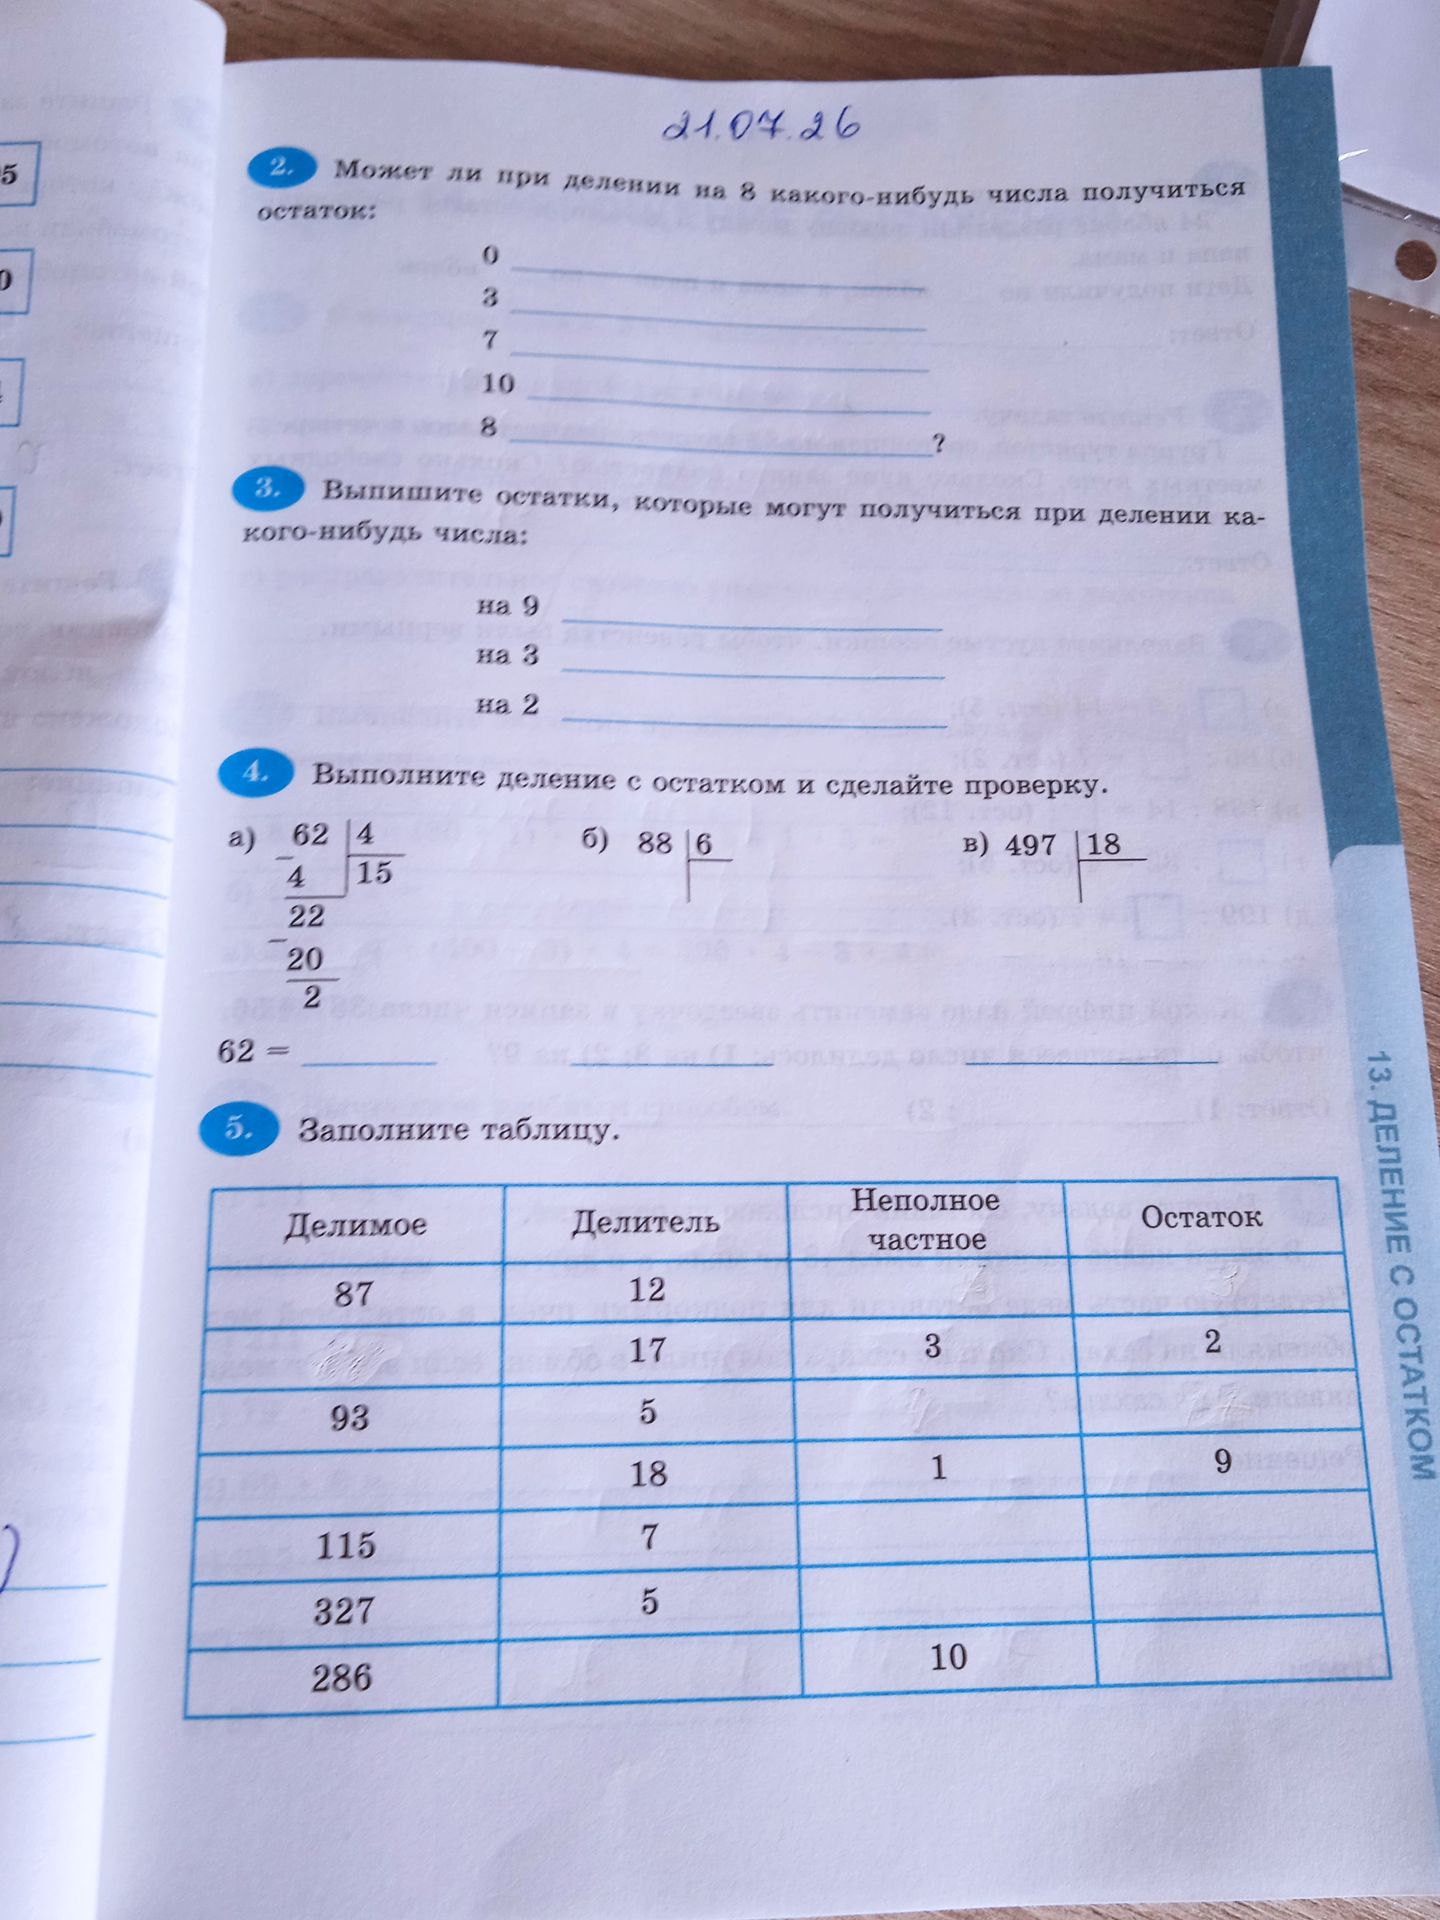 21.07.26
2. Может ли при делении на 8 какого-нибудь числа получиться
остаток:
0
3
7
10
8 ?
3. Выпишите остатки, которые могут получиться при делении ка-
кого-нибудь числа:
на 9
на 3
на 2
4. Выполните деление с остатком и сделайте проверку.
а) 62 4 б) 88 6 в) 497 18
− 4 15
22
− 20
2
62 =
5. Заполните таблицу.
Делимое Делитель Неполное частное Остаток
87 12
17 3 2
93 5
18 1 9
115 7
327 5
286 10
13. ДЕЛЕНИЕ С ОСТАТКОМ